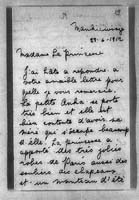 27-6-1912
Madame La Princesse
J'ai hâte à répondre à
votre aimable lettre pour
je vous remercie.
La petite se porte
très bien et elle est
bien contente d'avoir sa
mère qui s'occupe beaucoup
d'elle. La princesse a
apporté des très jolies
robes de Paris ainsi des
souliers des chapeaux
et un manteau d'été